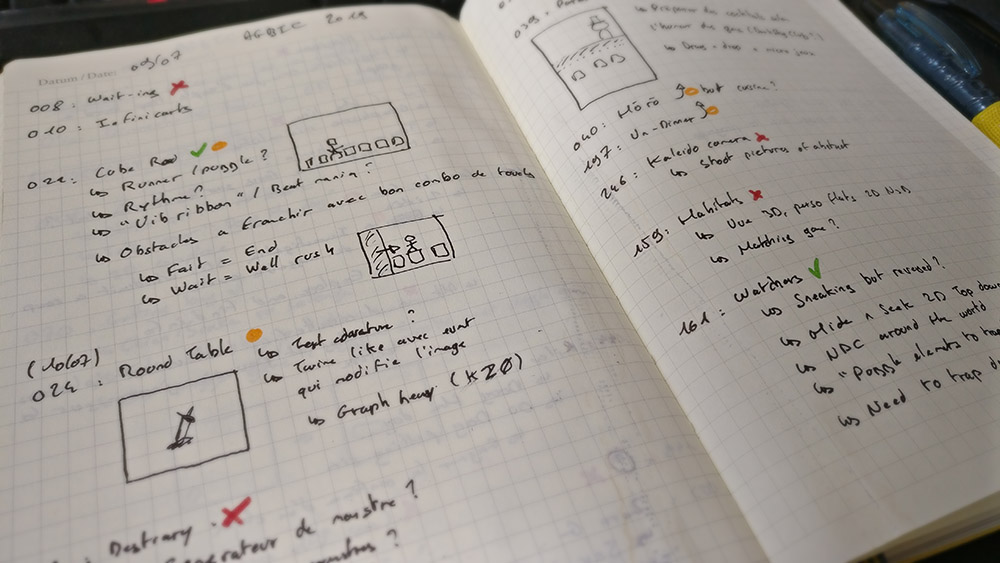 AGBIC 2019
Datum / Date: 09/07
008 : Wait-ing
010 : Infinicarts
022 : Cube Road
↳ Runner / puzzle ?
↳ Rythme ?
↳ "Vib ribbon" / Beat mania ?
↳ Obstacles a franchir avec bon combo de touches
↳ Fait = End
↳ Wait = Wall rush
(10/07)
024 : Round Table
↳ Text adventure ?
↳ Twine like avec event
qui modifie l'image
↳ Graph heavy (KZ0)
Destrary
Generateur de monstre ?
monstres ?
039 :
↳ Préparer des cocktails
↳ Drag + drop + micro jeux
040 : Hōrō but cuisine ?
197 : Un-Dinner
246 : Kaleido camera
↳ Shoot pictures of abstract
159 : Habitats
↳ Vue 3D, perso flats 2D
↳ Matching game ?
161 : Watchers
↳ Sneaking but reversed ?
↳ Hide n Seek 2D Top down
↳ NPC around the world
↳ "Puzzle elements to
↳ Need to trap